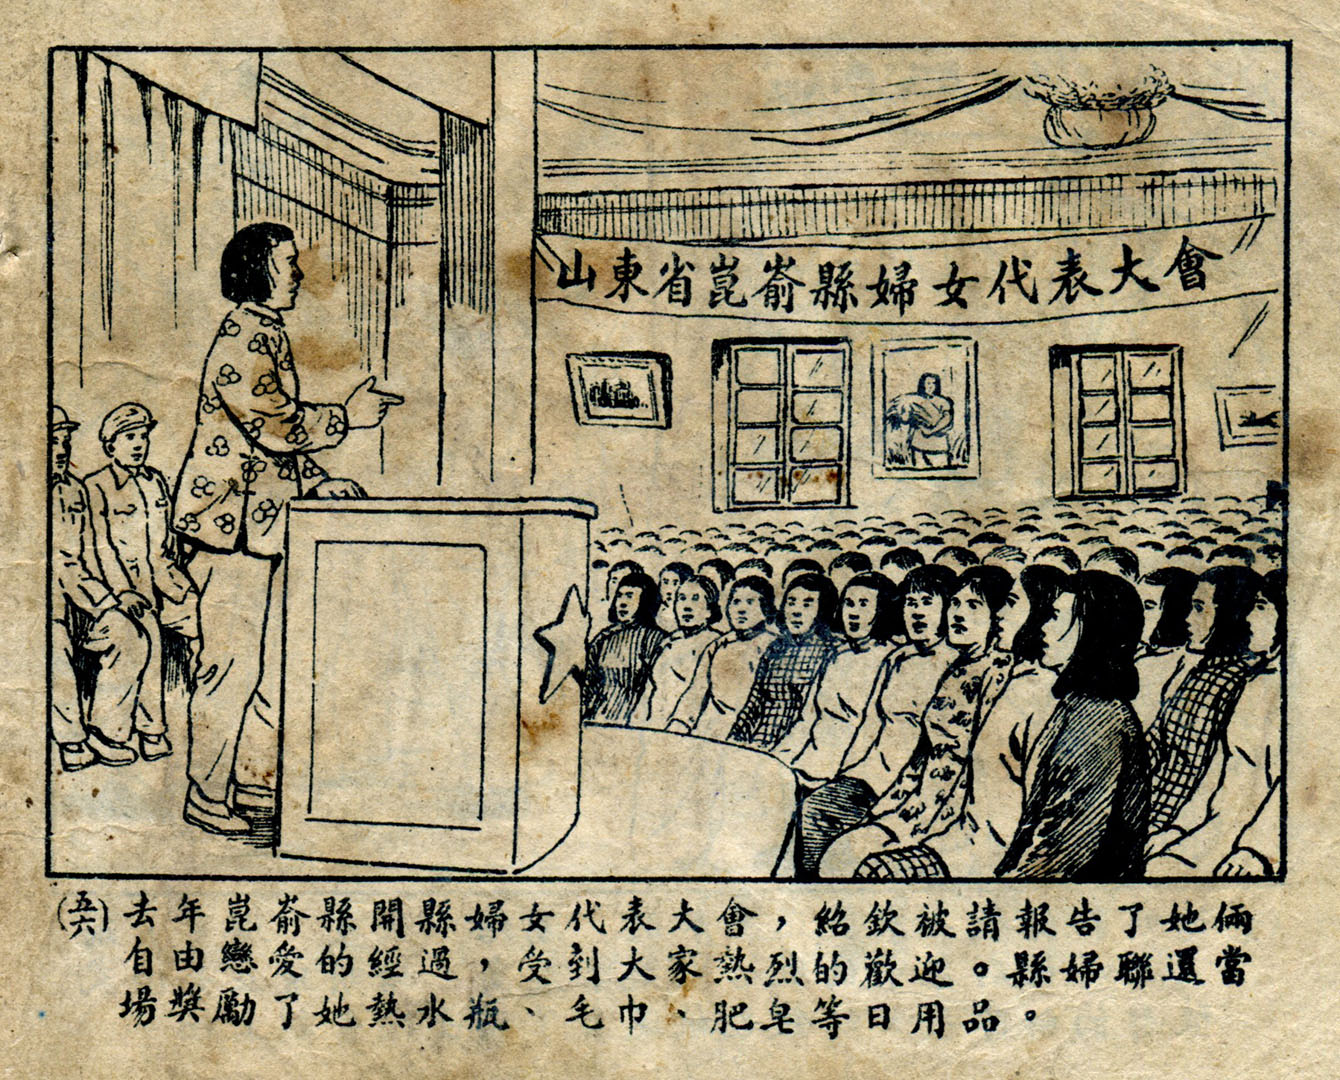 山東省崑嵛縣婦女代表大會
(五六)
去年崑嵛縣開縣婦女代表大會，紹欽被請報告了她倆
自由戀愛的經過，受到大家熱烈的歡迎。縣婦聯還當
場獎勵了她熱水瓶、毛巾、肥皂等日用品。